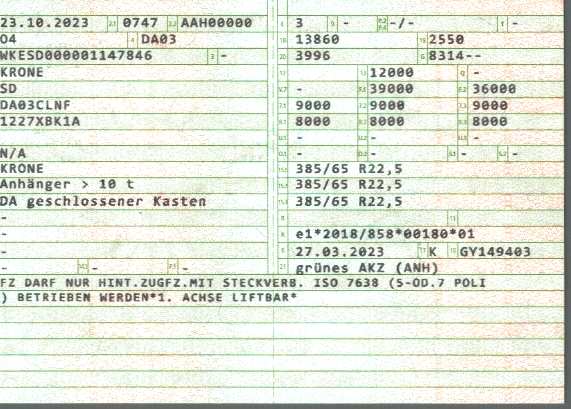 23.10.2023 2.1 0747 2.2 AAH00000 L 3 9 - P.2 P.4 -/- T -
04 4 DA03 18 13860 19 2550
WKESD000001147846 3 - 20 3996 G 8314--
KRONE 12 - 13 12000 Q -
SD V.7 - F.1 39000 F.2 36000
DA03CLNF 7.1 9000 7.2 9000 7.3 9000
1227XBK1A 8.1 8000 8.2 8000 8.3 8000
U.1 - U.2 - U.3 -
N/A O.1 - O.2 - S.1 - S.2 -
KRONE 15.1 385/65 R22,5
Anhänger > 10 t 15.2 385/65 R22,5
DA geschlossener Kasten 15.3 385/65 R22,5
- R 11
- K e1*2018/858*00180*01
- 6 27.03.2023 17 K 16 GY149403
- 14.1 - P.1 - 21 grünes AKZ (ANH)
FZ DARF NUR HINT.ZUGFZ.MIT STECKVERB. ISO 7638 (5-OD.7 POLI
) BETRIEBEN WERDEN*1. ACHSE LIFTBAR*